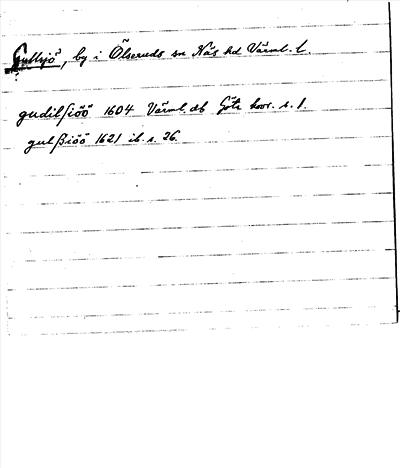 Gullsjö, by i Ölseruds sn Näs hd Värml. l.
gudilsiöö 1604 Värml. db Göte hovr. s. 1.
gulssiöö 1621 ib. s. 26.